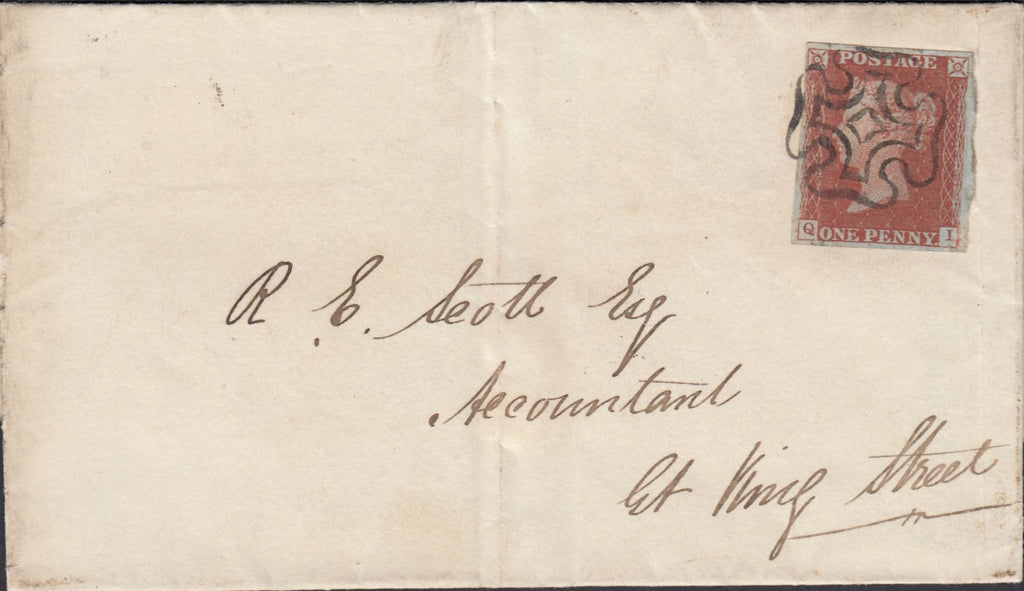 POSTAGE
Q ONE PENNY. I
R. E. Scott Esq
Accountant
Gt King Street